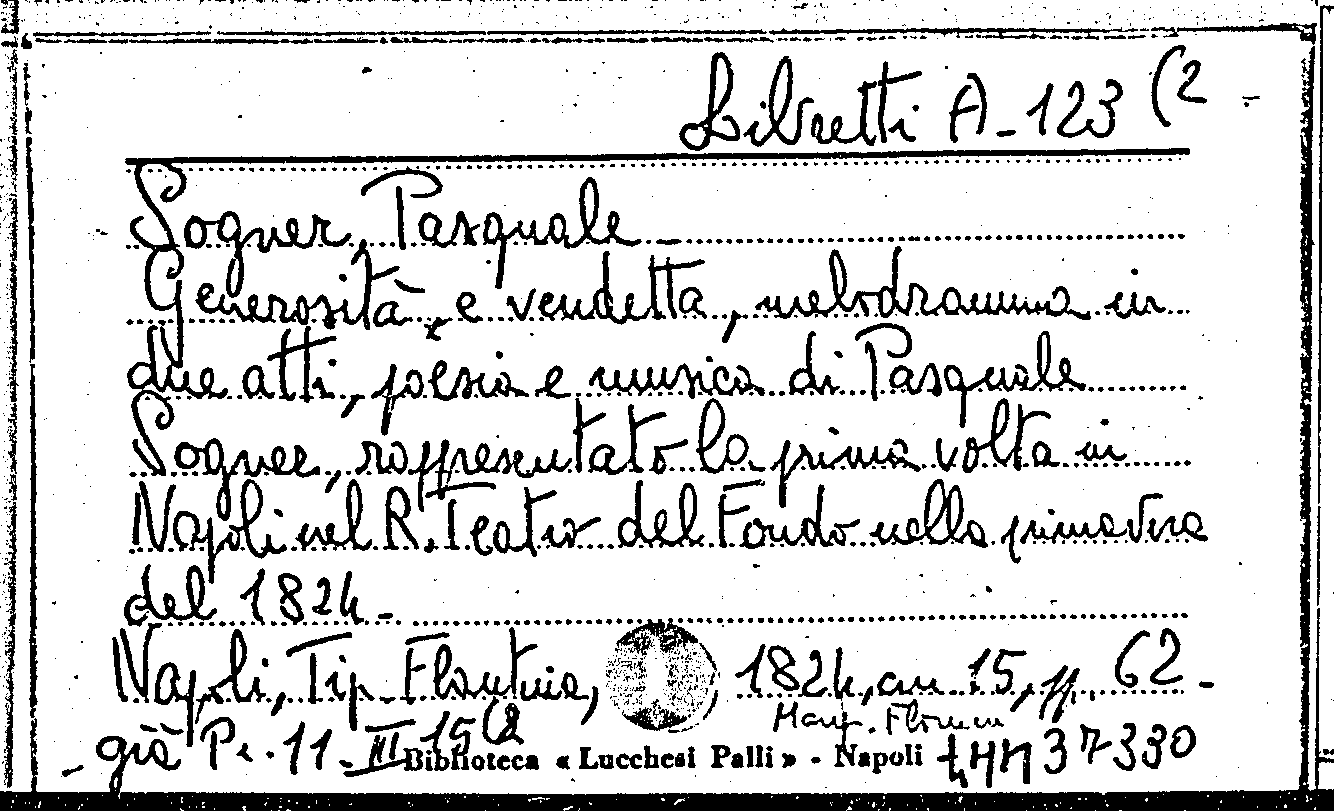 Libretti A-123 (2
Sogner, Pasquale
Generosità e vendetta, melodramma in
due atti, poesia e musica di Pasquale
Sogner, rappresentato la prima volta in
Napoli nel R. Teatro del Fondo nella primavera
del 1824-
Napoli, Tip. Flautina, 1824, cm 15, pp. 62-
- già Pe. 11-III-15(2
Biblioteca « Lucchesi Palli » - Napoli 37330